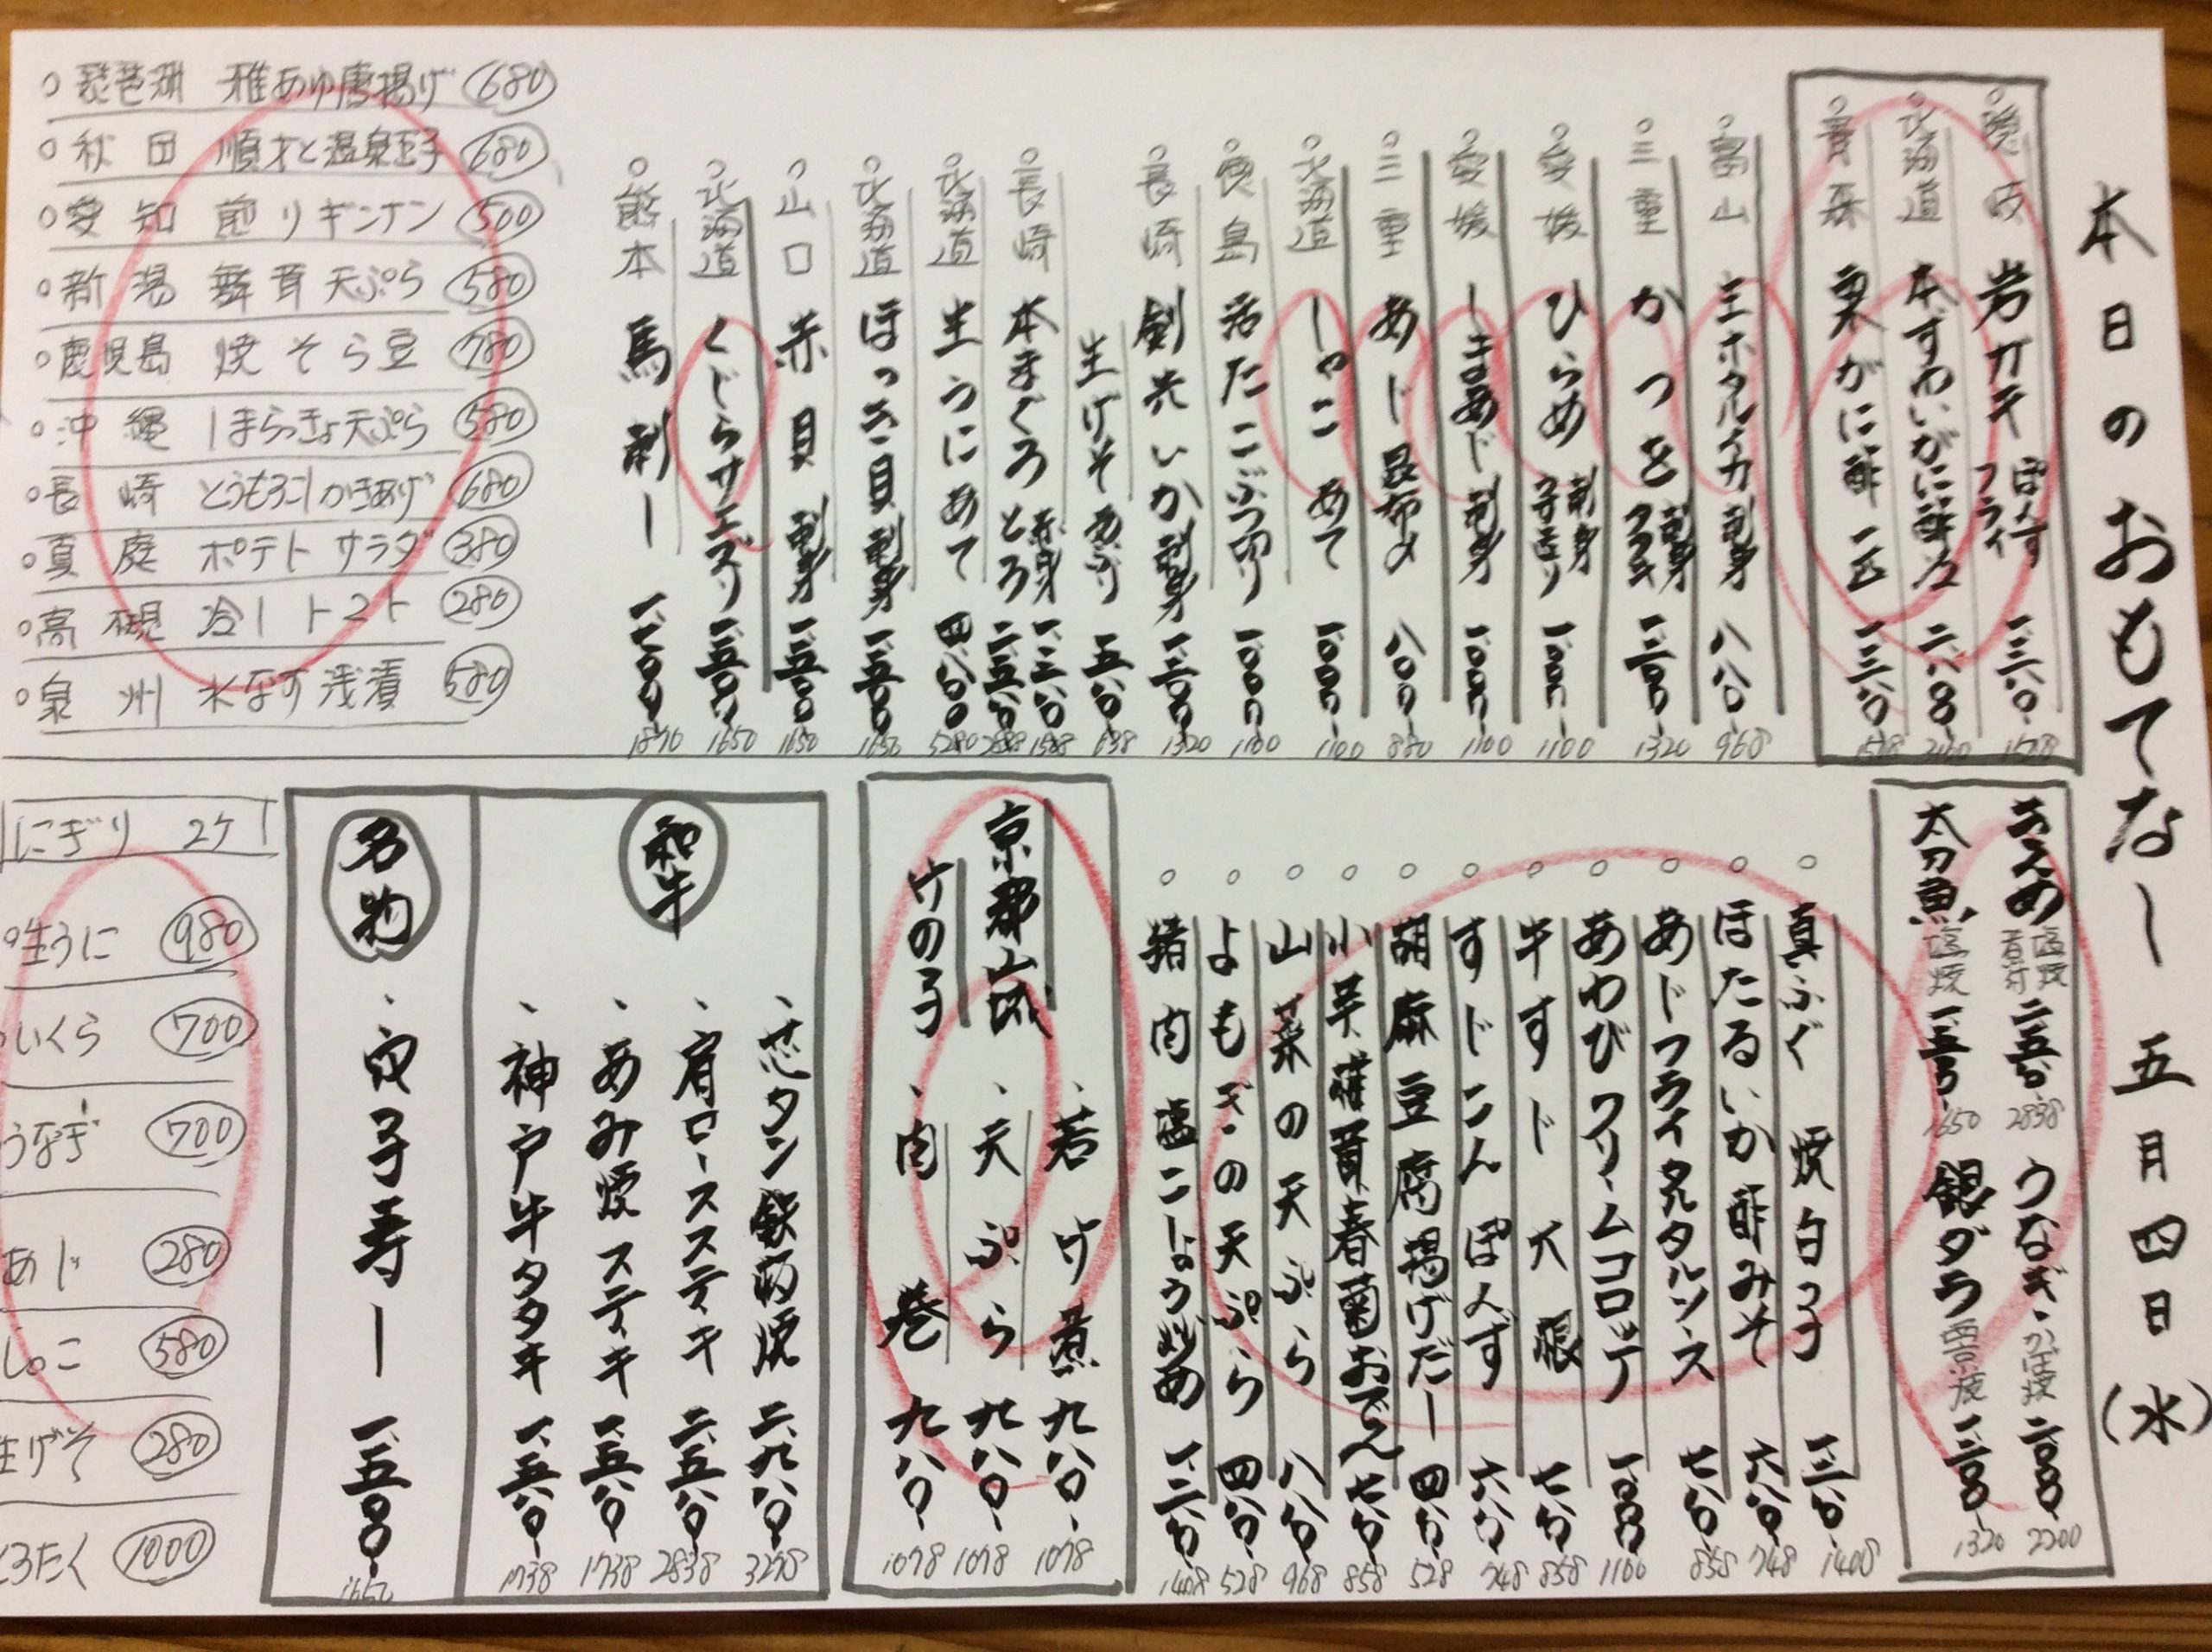 本日のおもてなし 五月四日(水)
岩ガキ ぽんず フライ 一、三八〇 1518
北海道 本ずわいがに酢
青森 栗がに酢 一、三八〇 1518
富山 生ホタルイカ刺身 八八〇 968
三重 かつを 刺身 タタキ 一、二〇〇 1320
愛媛 ひらめ 刺身 一、〇〇〇 1100
愛媛 しまあじ刺身 一、〇〇〇 1100
三重 あじ昆布〆 八〇〇 880
北海道 しゃこ あて 一、〇〇〇 1100
活たこぶつ切り 一、〇〇〇 1100
長崎 剣先いか刺身 一、二〇〇 1320
生げそ 五八〇 638
長崎 本まぐろ 赤身 とろ
北海道 生うにあて 四、八〇〇 5280
北海道 ほっき貝刺身 一、五〇〇 1650
山口 赤貝刺身 一、五〇〇 1650
北海道 くじらサエズリ 一、五〇〇 1650
熊本 馬刺し
琵琶湖 稚あゆ唐揚げ 680
秋田 順才と温泉玉子 680
愛知 煎りギンナン 500
新潟 舞茸天ぷら 580
鹿児島 焼そら豆 780
沖縄 しまらっきょ天ぷら 580
長崎 とうもろこしかきあげ 680
真庭 ポテトサラダ 380
高槻 冷しトマト 280
泉州 水なす浅漬 580
塩焼 煮付 二、五八〇 2838
うなぎ かば焼 二、〇〇〇 2200
太刀魚 塩焼 一、五〇〇 1650
銀ダラ 西京焼 一、二〇〇 1320
真ふぐ 焼白子 1408
ほたるいか酢みそ 六八〇 748
あじフライタルタルソース 七八〇 858
あわびクリームコロッケ 一、〇〇〇 1100
牛すじ大根 七八〇 858
すじこんぽんず 六八〇 748
胡麻豆腐揚げだし 四八〇 528
小芋蓮根春菊おでん 七八〇 858
山菜の天ぷら 八八〇 968
よもぎの天ぷら 四八〇 528
猪肉塩こしょう炒め 1408
京都山城
竹の子
、若竹煮 九八〇 1078
、天ぷら 九八〇 1078
、肉巻 九八〇 1078
和牛
、芯タン鉄板焼 二、九八〇 3278
、肩ロースステーキ 二、五八〇 2838
、あみ焼ステーキ 一、五八〇 1738
、神戸牛タタキ 一、五八〇 1738
名物
、穴子寿し 一、五〇〇 1650
にぎり 2ケ
生うに 980
いくら 700
うなぎ 700
あじ 280
しゃこ 580
生げそ 280
とろたく 1000